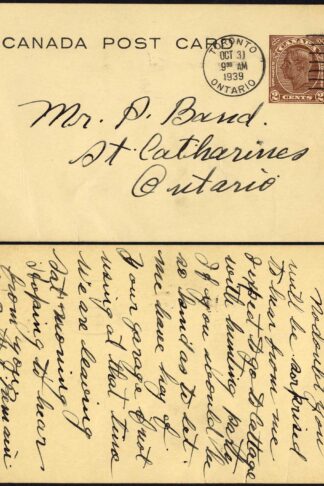 CANADA POST CARD
TORONTO
OCT 31
9 AM
1939
ONTARIO
CANADA
2 CENTS 2
Mr. P. Band.
St. Catharines
Ontario
No doubt you
will be surprised
to hear from me
I expect to go to Cottage
with hunting party
If you would be
so kind as to let
me have key of
your garage but
using at that time
We are leaving
Sat morning
Hoping to hear
from you